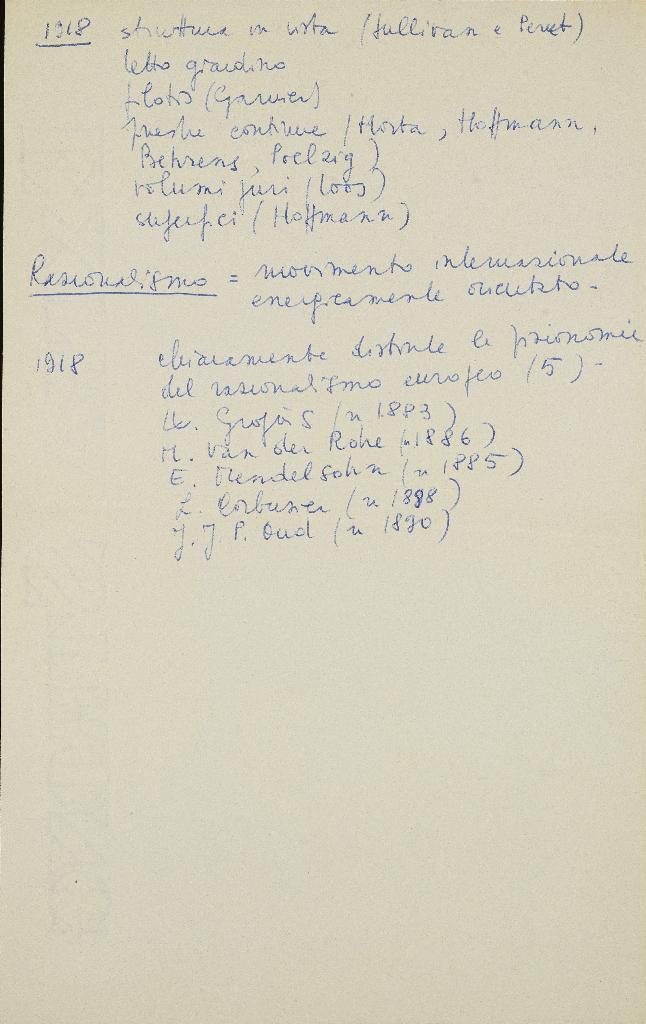 1918 struttura in vista (Sullivan e Perret)
tetto giardino
pilotis (Garnier)
finestre continue (Horta, Hoffmann,
Behrens, Poelzig)
volumi puri (Loos)
superfici (Hoffmann)
Razionalismo = movimento internazionale
energicamente orientato -
1918 chiaramente distinte le fisionomie
del razionalismo europeo (5) -
W. Gropius (n 1883)
M. Van der Rohe (n 1886)
E. Mendelsohn (n 1885)
L. Corbusier (n 1888)
J. J. P. Oud (n 1890)